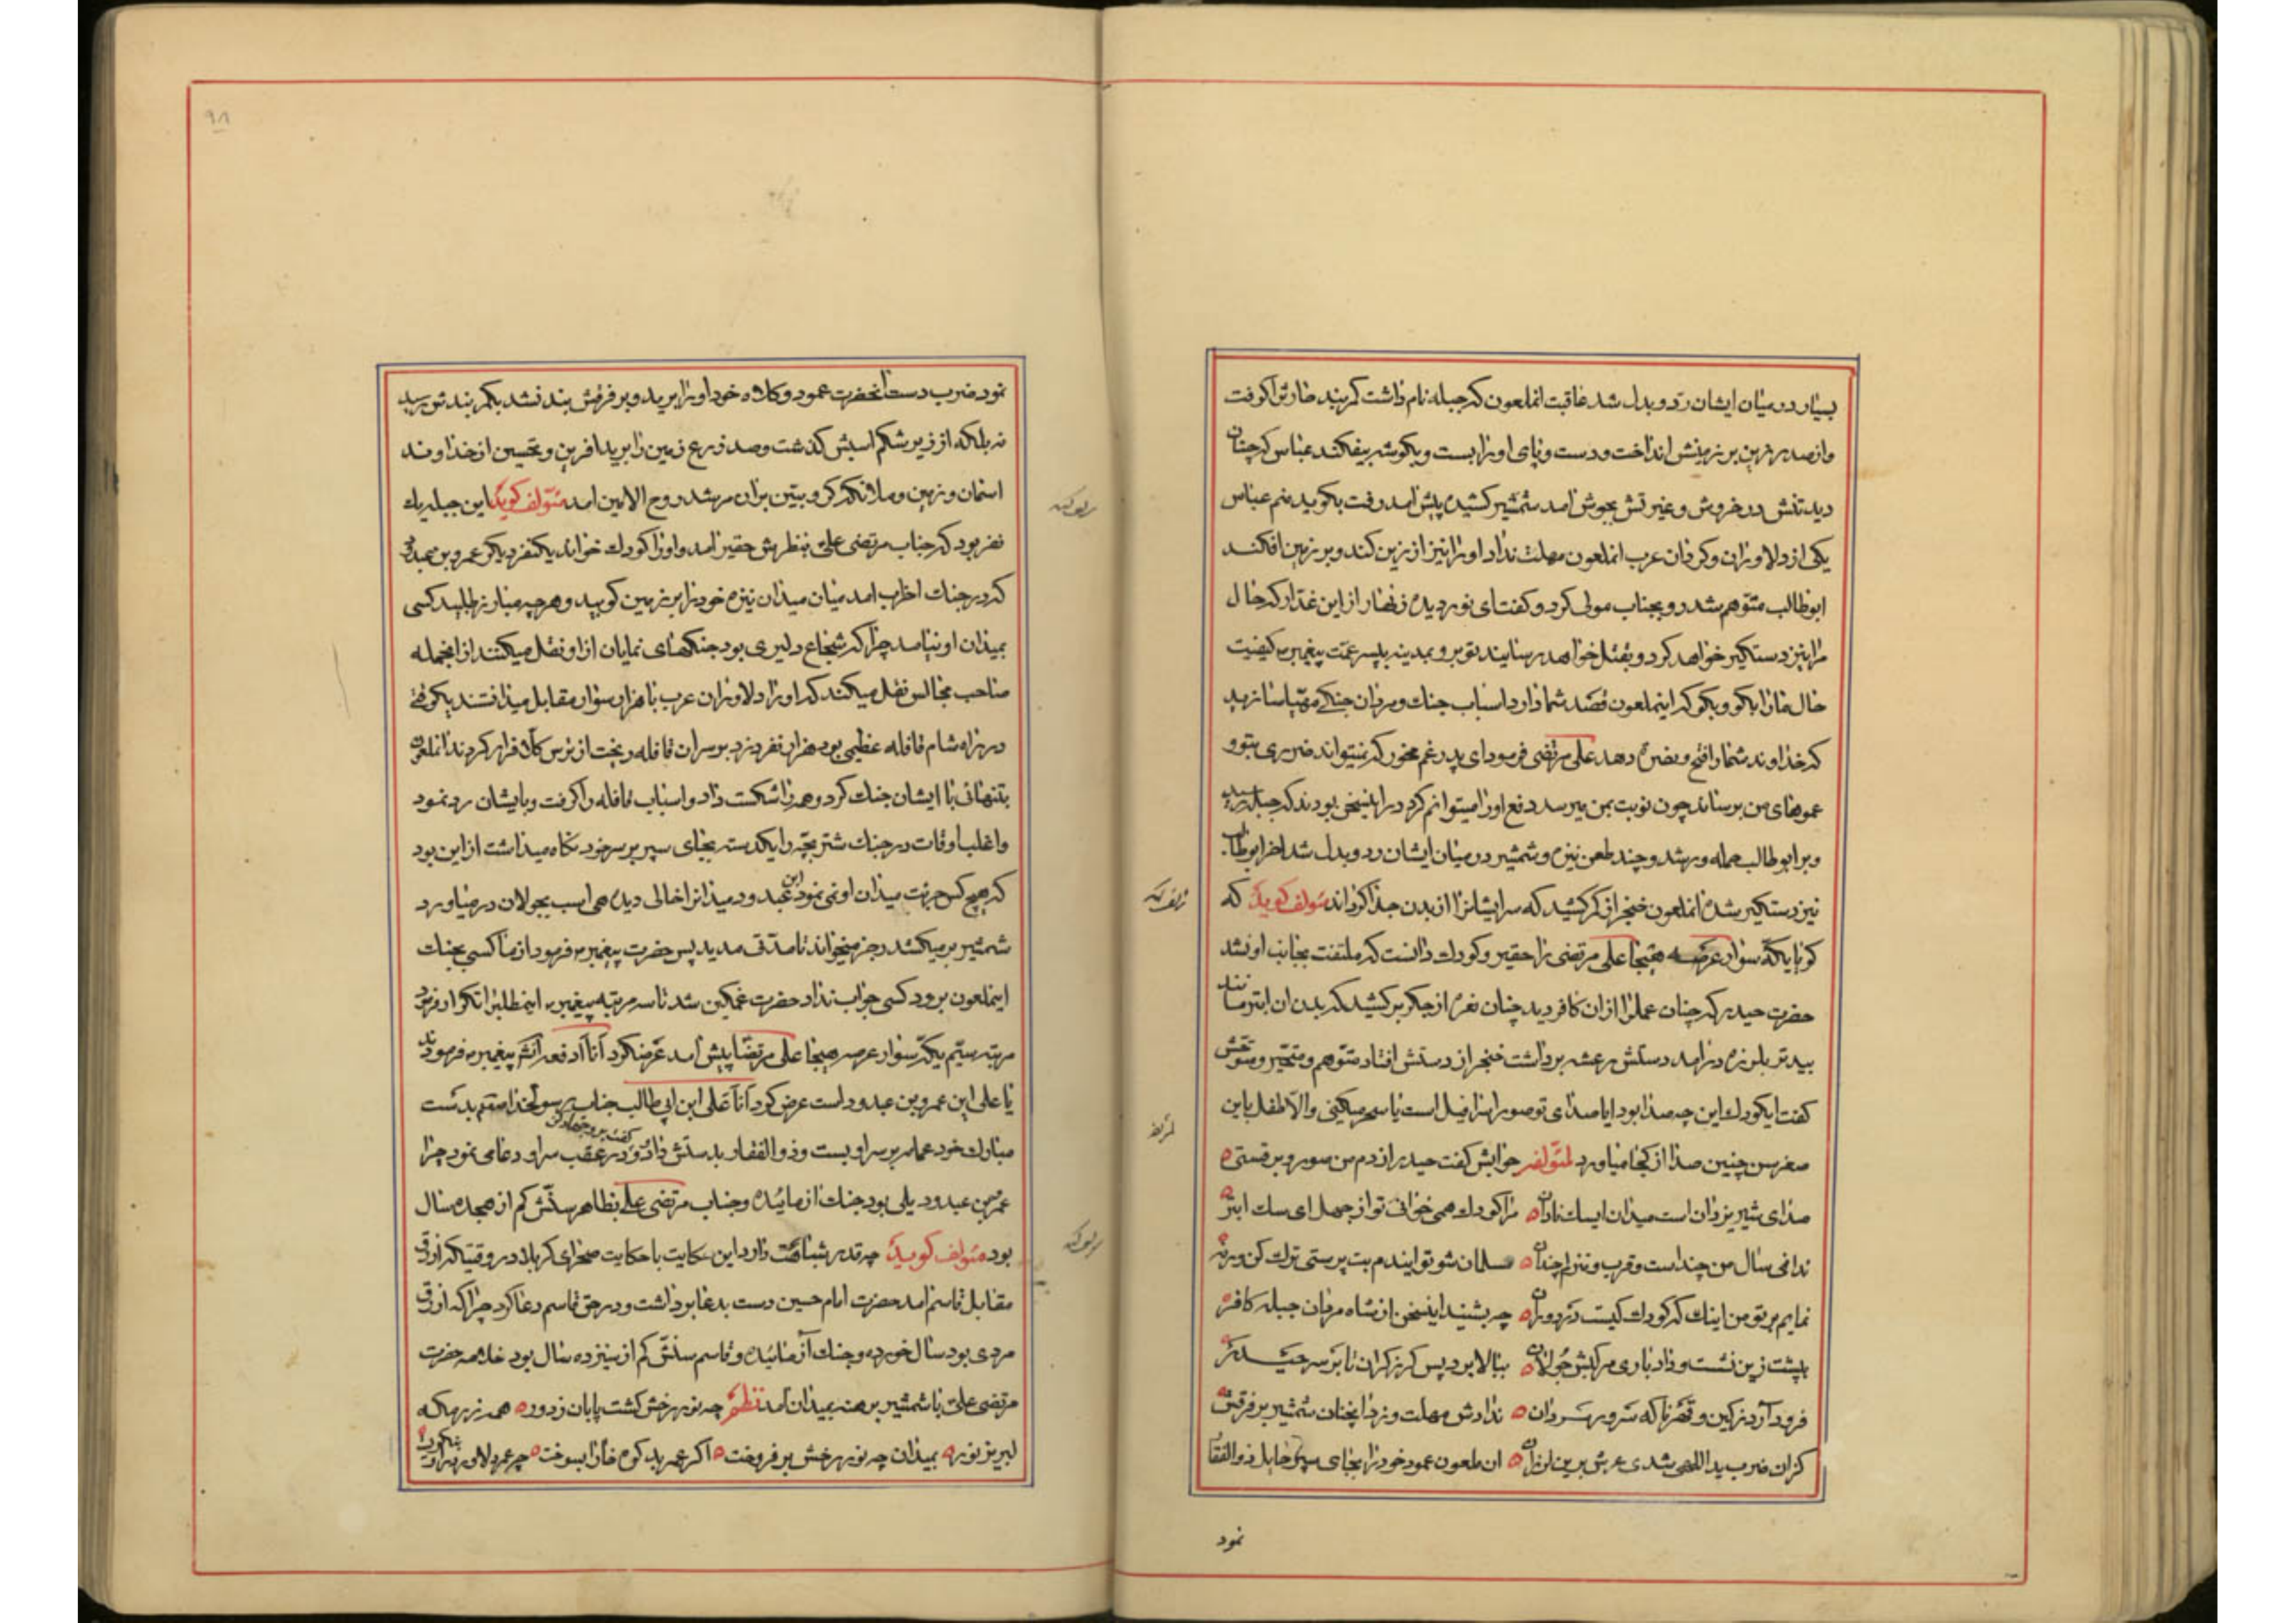 بسیار در میان ایشان رد و بدل شد عاقبت انملعون که جبله نام داشت کمربند حارث را گرفت
و از صدر زین بر زمینش انداخت و دست و پای او را بست و بگوشه بیفکند عباس که چنان
دید تنش در خروش و غیرتش بجوش امد شمشیر کشیده پیش امد رفت بگوید منم عباس
یکی از دلاوران و کردان عرب انملعون مهلت نداد او را نیز از زین کند و بر زمین افکند
ابوطالب متوهم شد رو بجناب مولی کرد و گفت ای نور دیده زنهار از این غدار که حال
مرا نیز دستگیر خواهد کرد و بقتل خواهد رسانید تو برو بمدینه پسر عمت پیغمبر کیفیت
حال ما را بگو و بگو که اینملعون قصد شما دارد اسباب جنک و مردان جنگی مهیا سازید
که خداوند شما را فتح و نصرت دهد علی مرتضی فرمود ای پدر غم مخور که نمیتواند ضرری بتو و
عموهای من برساند چون نوبت بمن میرسد دفع او را میتوانم کرد در اینسخن بودند که جبله رسید
و بر ابوطالب حمله ور شد و چند طعن نیزه و شمشیر در میان ایشان رد و بدل شد اخر ابوطالب
نیز دستگیر شد انملعون خنجر از کمر کشید که سر ایشانرا از بدن جدا کرداند مؤلف کوید که
کویا یکه سوار عرصه هیجا علی مرتضی را حقیر و کودک دانست که ملتفت بجانب او نشد
حضرت حیدر که چنان عمل را از ان کافر دید چنان نعره از جکر بر کشید که بدن ان ابتر مانند
بید تر بلرزه درامد دستش رعشه برداشت خنجر از دستش افتاد متوهم و متحیر و متوحش
گفت ایکودک این چه صدا بود ایا صدای تو صور اسرافیل است یا سحر میکنی و الا طفل باین
صغر سن چنین صدا از کجا میاورد لمؤلفه جوابش گفت حیدر از دم من صور و بر قستی
صدای شیر یزدان است میدان ایسک نادان مرا کودک همی خوانی تو از جهل ای سک ابتر
ندانی سال من چند است و قرب و منزلم چندان مسلمان شو تو ایندم بت پرستی ترک کن ورنه
نمایم بر تو من اینک که کودک کیست در دوران چه بشنید اینسخن از شاه مردان جبله کافر
بپشت زین نشست و داد باری مرکبش جولان ببالا برد پس کرز کران تا بر سر حیدر
فرود آرد ز کین و قهر ناکه سرور مردان ندادش مهلت و زد انچنان شمشیر بر فرقش
کزان ضرب ید اللهی شدی عرش برین لرزان ان ملعون عمود خود را بجای سپر حایل ذوالفقار
نمود
۹۸
نمود ضرب دست انحضرت عمود و کلاه خود او را برید و بر فرقش بند نشد بکمربندش رسید
نه بلکه از زیر شکم اسبش گذشت و صد ذرع زمین را برید افرین و تحسین از خداوند
اسمان و زمین و ملائکه کروبیین بران مرشد روح الامین امد مؤلف کوید این جبله یک
نفر بود که جناب مرتضی علی بنظرش حقیر امد و او را کودک خواند یکنفر دیگر عمرو بن عبدود
که در جنک احزاب امد میان میدان نیزه خود را بر زمین کوبید و هر چه مبارز طلبید کسی
بمیدان او نیامد چرا که شجاع دلیری بود جنکهای نمایان از او نقل میکنند از انجمله
صاحب مجالس نقل میکند که او را دلاوران عرب با هزار سوار مقابل میدانستند یکوقتی
در راه شام قافله عظیمی بود هزار نفر دزد بر سر ان قافله ریخت از ترس کلا فرار کردند انملعون
بتنهائی با ایشان جنک کرد و همه را شکست داد و اسباب قافله را گرفت و بایشان رد نمود
و اغلب اوقات در جنک شتر بچه را یکدسته بجای سپر بر سر خود نگاه میداشت از این بود
که هیچ کس جرئت میدان او نمی نمود ابن عبدود میدانرا خالی دیده هی اسب بجولان در میاورد
شمشیر بر میکشد رجز میخواند تا مدتی مدید پس حضرت پیغمبر فرمود از ما کسی بجنک
اینملعون برود کسی جواب نداد حضرت غمگین شد تا سه مرتبه پیغمبر اینمطلب را تکرار فرمود
مرتبه سیم یکه سوار عرصه هیجا علی مرتضی پیش امد عرضکرد انا ادفعه انش پیغمبر فرمودند
یا علی این عمرو بن عبدود است عرض کرد انا علی ابن ابی طالب جناب رسولخدا صقیم بدست
مبارک خود عمامه بر سر او بست و ذوالفقار بدستش داد و گفت برو بجهاد کن و در عقب سر او دعا می نمود چرا
عمرو بن عبدود یلی بود جنک ازمائیده و جناب مرتضی علی بظاهر سنش کم از هیجده سال
بود مؤلف کوید چه قدر شباهت دارد این حکایت با حکایت صحرای کربلا در وقتیکه ازرق
مقابل قاسم امد حضرت امام حسین دست بدعا برداشت و در حق قاسم دعا کرد چرا که ازرق
مردی بود سال خورده و جنک آزمائیده و قاسم سنش کم از سیزده سال بود خلاصه حضرت
مرتضی علی با شمشیر برهنه بمیدان آمد نظم چه نور رخش گشت پایان ز دور همه زهره که
لبریز نور بمیدان چه نور رخش بر فروخت اگر عمر بد کوه خارا بسوخت چه عمرو دلاور